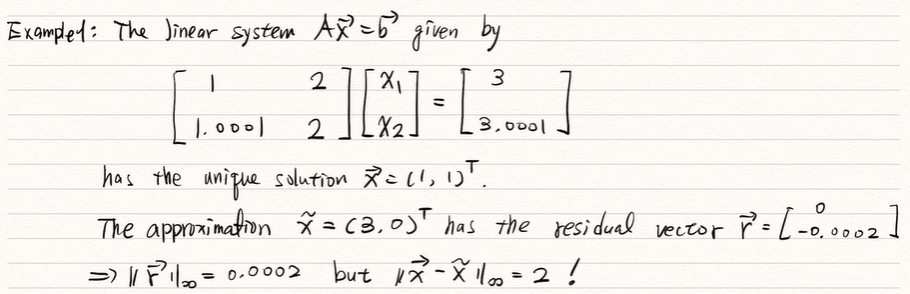 Example1: The linear system A\vec{x} = \vec{b} given by
\begin{bmatrix} 1 & 2 \\ 1.0001 & 2 \end{bmatrix} \begin{bmatrix} x_1 \\ x_2 \end{bmatrix} = \begin{bmatrix} 3 \\ 3.0001 \end{bmatrix}
has the unique solution \vec{x} = (1, 1)^T.
The approximation \tilde{x} = (3, 0)^T has the residual vector \vec{r} = \begin{bmatrix} 0 \\ -0.0002 \end{bmatrix}
⇒ ‖\vec{r}‖_∞ = 0.0002 but ‖\vec{x} - \tilde{x}‖_∞ = 2 !